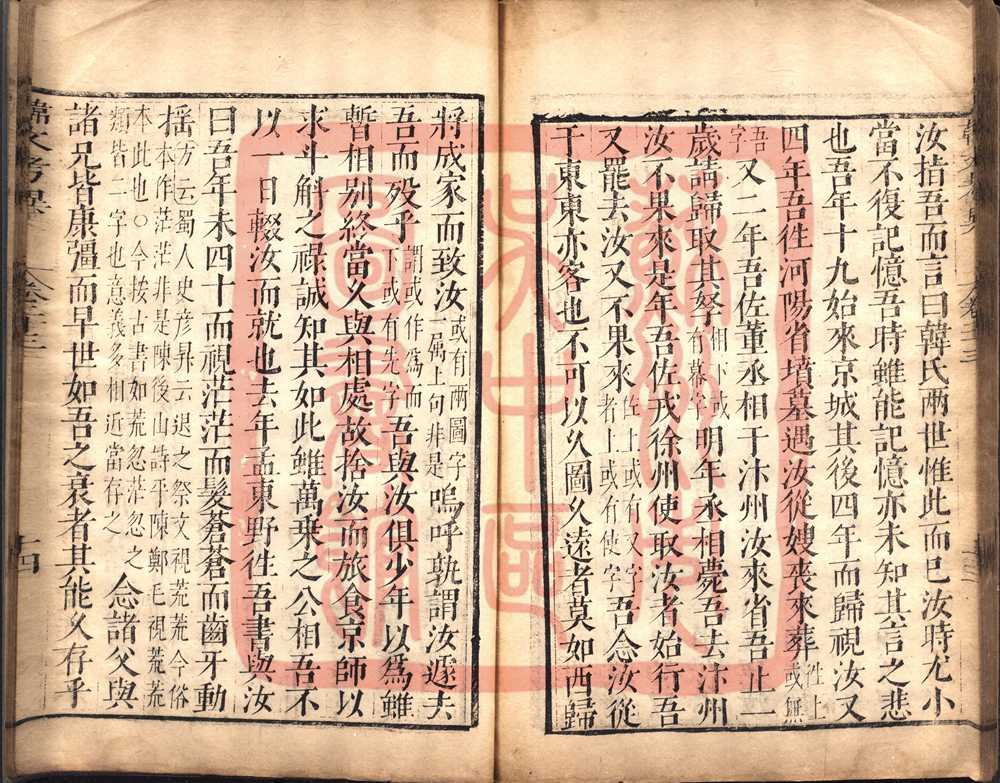 汝指吾而言曰韓氏兩世惟此而已汝時尤小
當不復記憶吾時雖能記憶亦未知其言之悲
也吾年十九始來京城其後四年而歸視汝又
四年吾徃河陽省墳墓遇汝從嫂喪來葬徃上或無
吾字又二年吾佐董丞相于汴州汝來省吾止一
歲請歸取其孥相下或有幕字明年丞相薨吾去汴州
汝不果來是年吾佐戎徐州使取汝者始行吾
又罷去汝又不果來佐上或有又字者上或有使字吾念汝從
于東東亦客也不可以久圖久遠者莫如西歸
將成家而致汝或有兩圖字一屬上句非是嗚呼孰謂汝遽去
吾而殁乎謂或作爲而下或有先字吾與汝俱少年以爲雖
暫相别終當久與相處故捨汝而旅食京師以
求斗斛之祿誠知其如此雖萬乘之公相吾不
以一日輟汝而就也去年孟東野徃吾書與汝
曰吾年未四十而視茫茫而髮蒼蒼而齒牙動
揺方云蜀人史彦昇云退之祭文視荒荒今俗
本作茫茫非是陳後山詩平陳鄭毛視荒荒
本此也○今按古書如荒忽茫忽之
類皆二字也意義多相近當存之念諸父與
諸兄皆康彊而早世如吾之衰者其能久存乎
韓文考異
卷二十三
十四